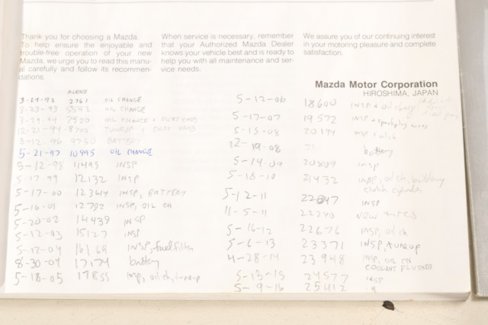 Thank you for choosing a Mazda.
To help ensure the enjoyable and
trouble-free operation of your new
Mazda, we urge you to read this manu-
al carefully and follow its recommen-
dations.
When service is necessary, remember
that your Authorized Mazda Dealer
knows your vehicle best and is ready to
help you with all maintenance and ser-
vice needs.
We assure you of our continuing interest
in your motoring pleasure and complete
satisfaction.
Mazda Motor Corporation
HIROSHIMA, JAPAN
OIL CHANGE
OIL CHANGE
OIL CHANGE
BATTERY
5-21-97 10995 OIL CHANGE
5-12-98 11495 INSP
5-17-99 12132 INSP
5-17-00 12364 INSP, BATTERY
5-16-01 12792 INSP, OIL CH
5-20-02 14439 INSP
5-12-03 15127 INSP
5-17-04 16168 INSP, fuel filter
8-30-04 17174 battery
5-18-05 17855 insp, oil ch,
5-12-06 18600 INSP
5-17-07 19572 INSP
5-15-08 20171
12-19-08 battery
5-14-09 20809 insp
5-18-10 21432 insp, oil ch, battery
5-12-11 22047 INSP
11-5-11 22290 NEW TIRES
5-16-12 22676 INSP, oil ch
5-6-13 23371 INSP, tune up
4-28-14 23948 INSP, OIL CH
COOLANT FLUSHED
5-13-15 24577 INSP
5-9-16 25012